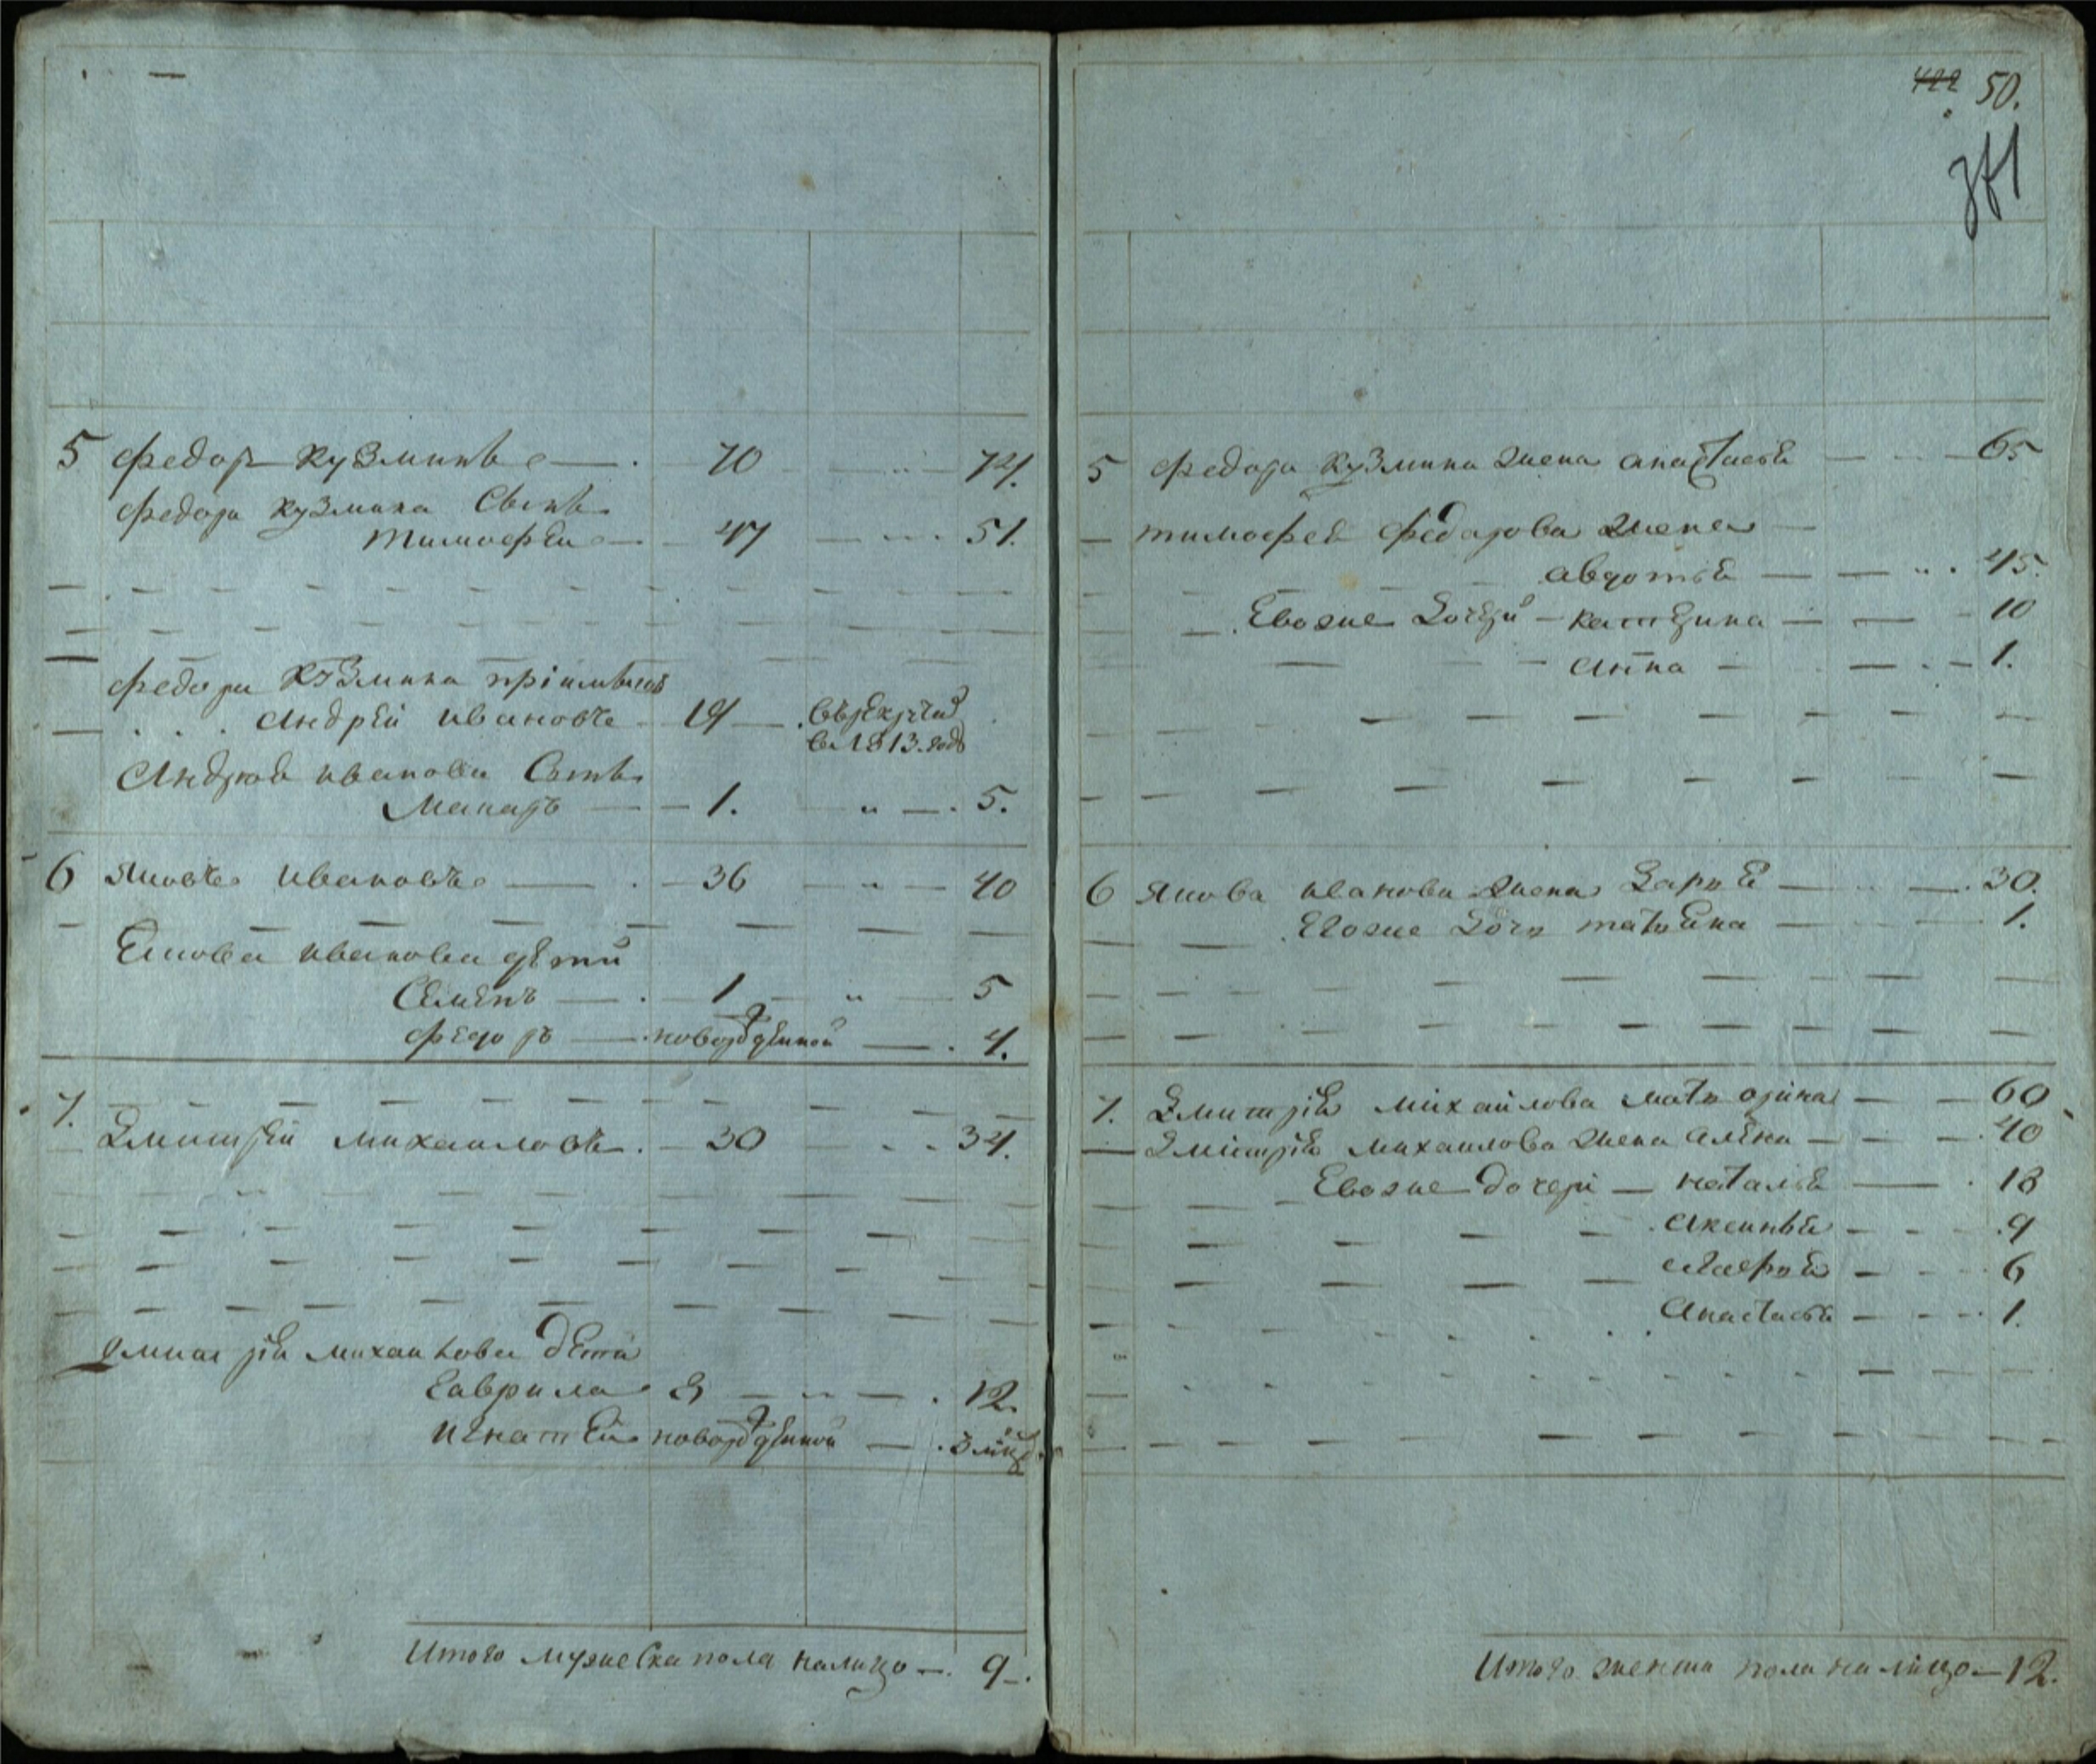 5 Федоръ Кузминъ — 70 — „ — 74.
Федора Кузмина Сынъ
Тимофѣй — 47 — 51.
Федора Кузмина пріимышъ
Андрѣй Ивановъ — 19 — въ рекруты
въ 1813. годъ
Андрѣя Иванова Сынъ
Макаръ — 1. — „ — 5.
6 Яковъ Ивановъ — 36 — „ — 40
Якова Иванова дѣти
Семенъ — 1 — „ — 5
Федоръ — новорожденной — 4.
7. Дмитрѣй Михаиловъ — 30 — 34.
Дмитрія Михаилова дѣти
Гаврила 8 — „ — 12.
Игнатѣй новорожденной — 3 мѣц.
Итого мужеска пола налицо — 9.
422 50.
5 Федора Кузмина жена Анастасья — 65
Тимофея Федорова жена —
Авдотья — „ 45.
Ево же дочери — Катерина — 10
Анна — 1.
6 Якова Иванова жена Дарья — 30.
Ево же дочь Татьяна — 1.
7. Дмитрія Михайлова мать Орина — 60
Дмитрія Михаилова жена Алена — 40
Ево же дочери — Наталья — 18
Аксинья — 9
Агафья — 6
Анастасья — 1.
Итого женска пола налицо — 12.